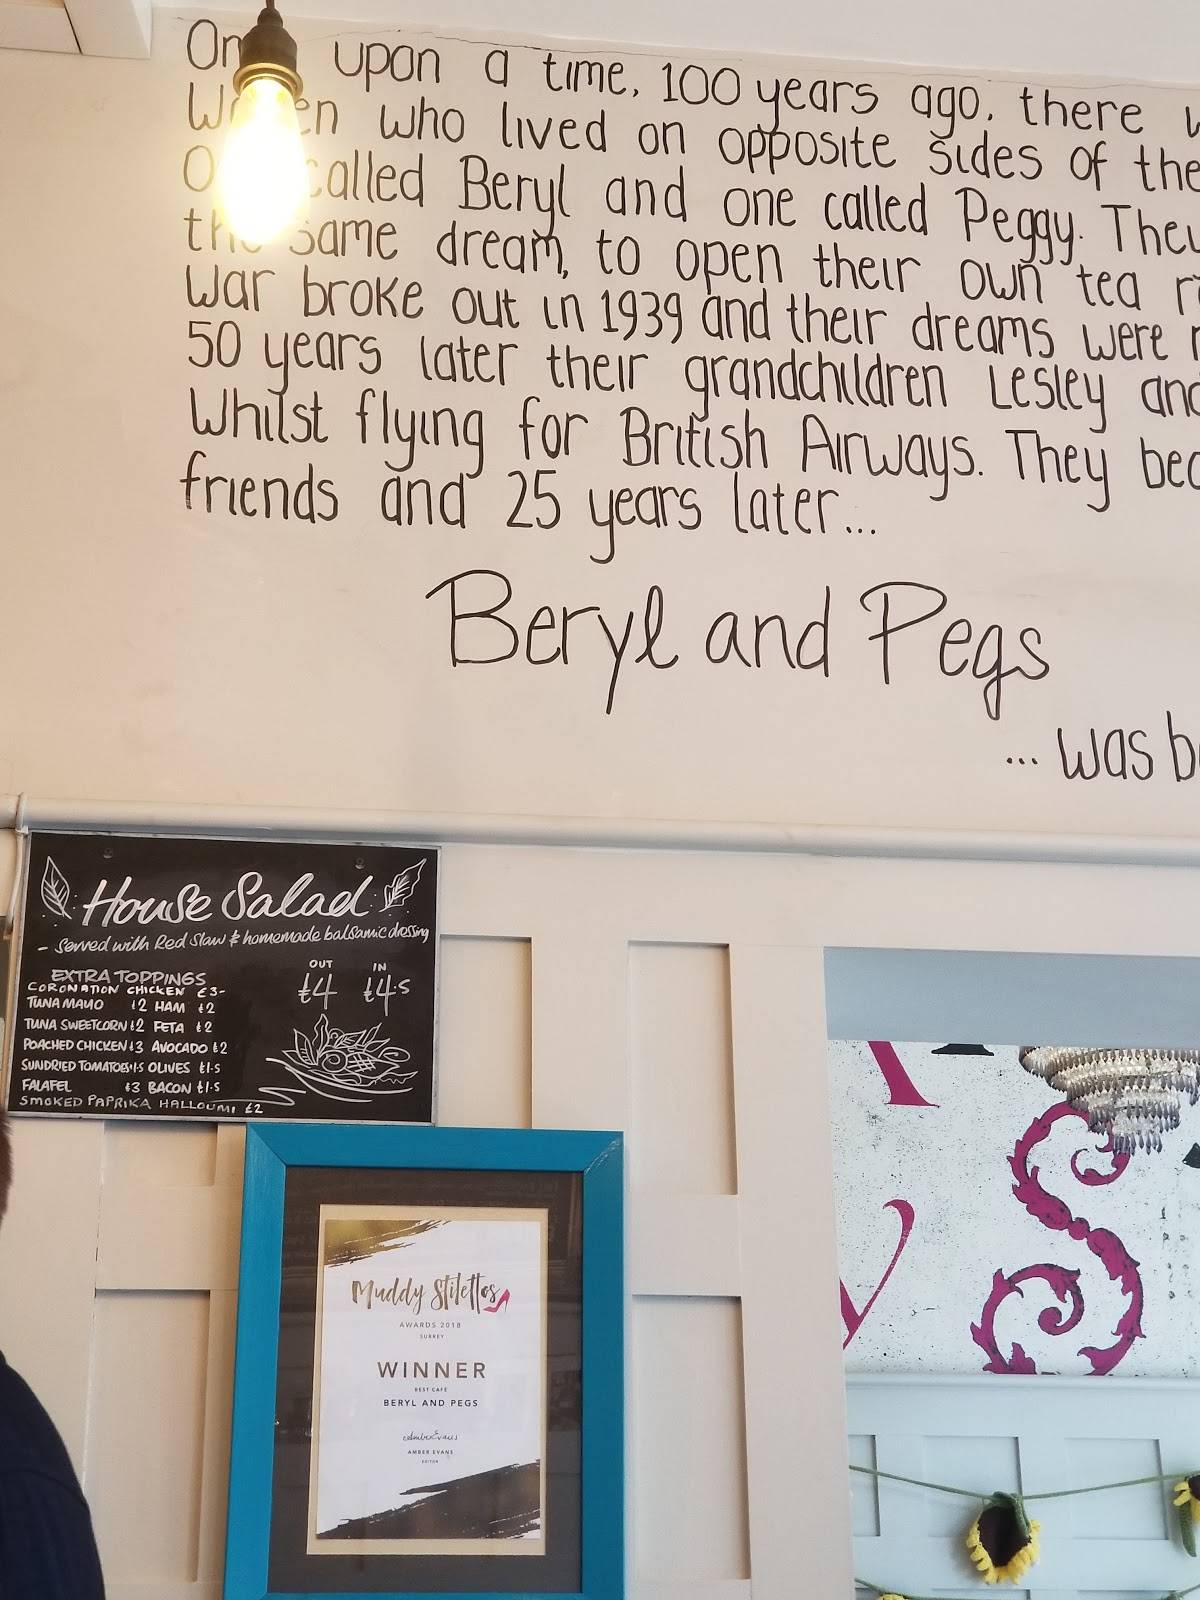 upon a time, 100 years ago, there
who lived on opposite sides of the
called Beryl and one called Peggy. They
the same dream, to open their own tea
War broke out in 1939 and their dreams were
50 years later their grandchildren Lesley and
Whilst flying for British Airways. They
friends and 25 years later...
Beryl and Pegs
... was
House Salad
- Served with Red Slaw & homemade balsamic dressing
OUT IN
£4 £4.5
EXTRA TOPPINGS
CORONATION CHICKEN £3-
TUNA MAYO £2 HAM £2
TUNA SWEETCORN £2 FETA £2
POACHED CHICKEN £3 AVOCADO £2
SUNDRIED TOMATOES 1.5 OLIVES £1.5
FALAFEL £3 BACON £1.5
SMOKED PAPRIKA HALLOUMI £2
Muddy Stilettos
AWARDS 2018
SURREY
WINNER
BEST CAFE
BERYL AND PEGS
Amber Evans
AMBER EVANS
EDITOR
S